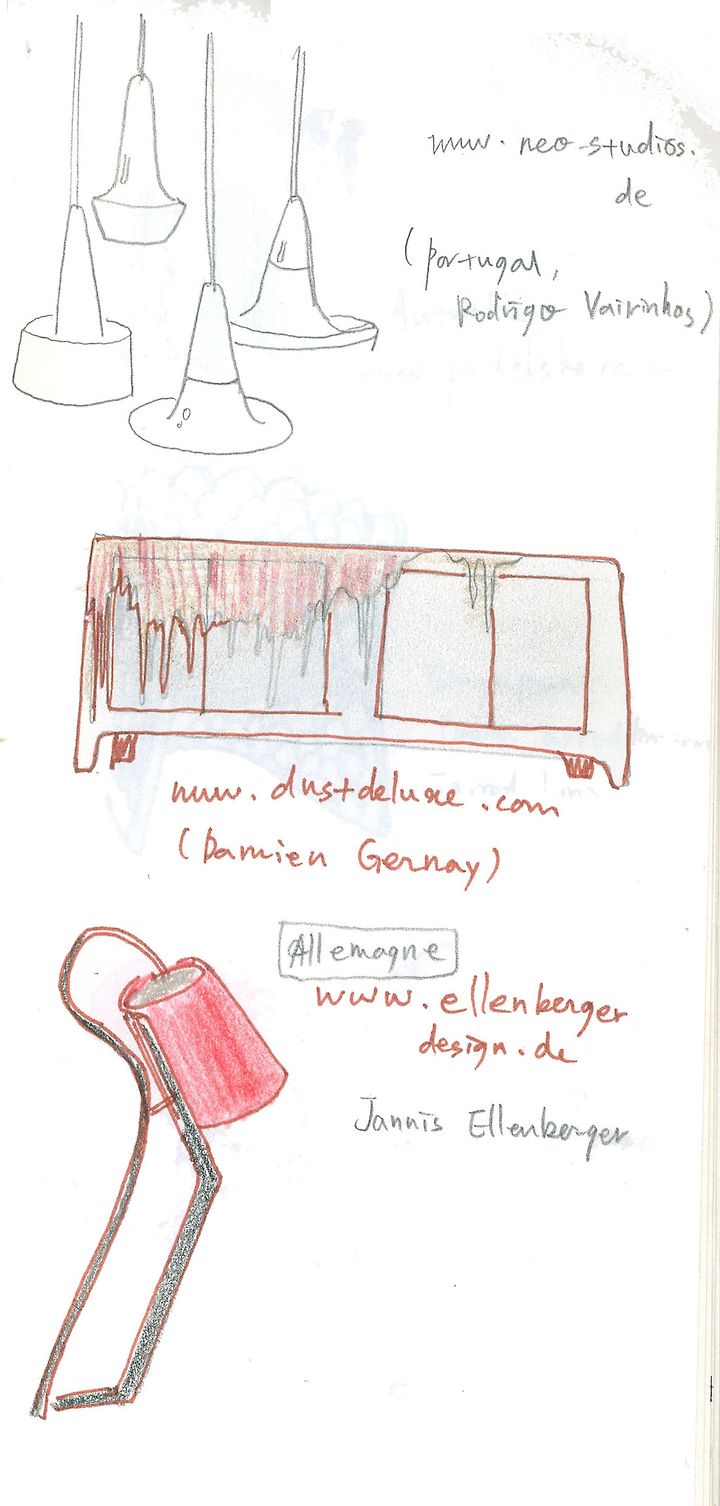 www.neo-studios.
de
(portugal,
Rodrigo Vairinhos)
www.dustdeluxe.com
(Damien Gernay)
Allemagne
www.ellenberger
design.de
Jannis Ellenberger